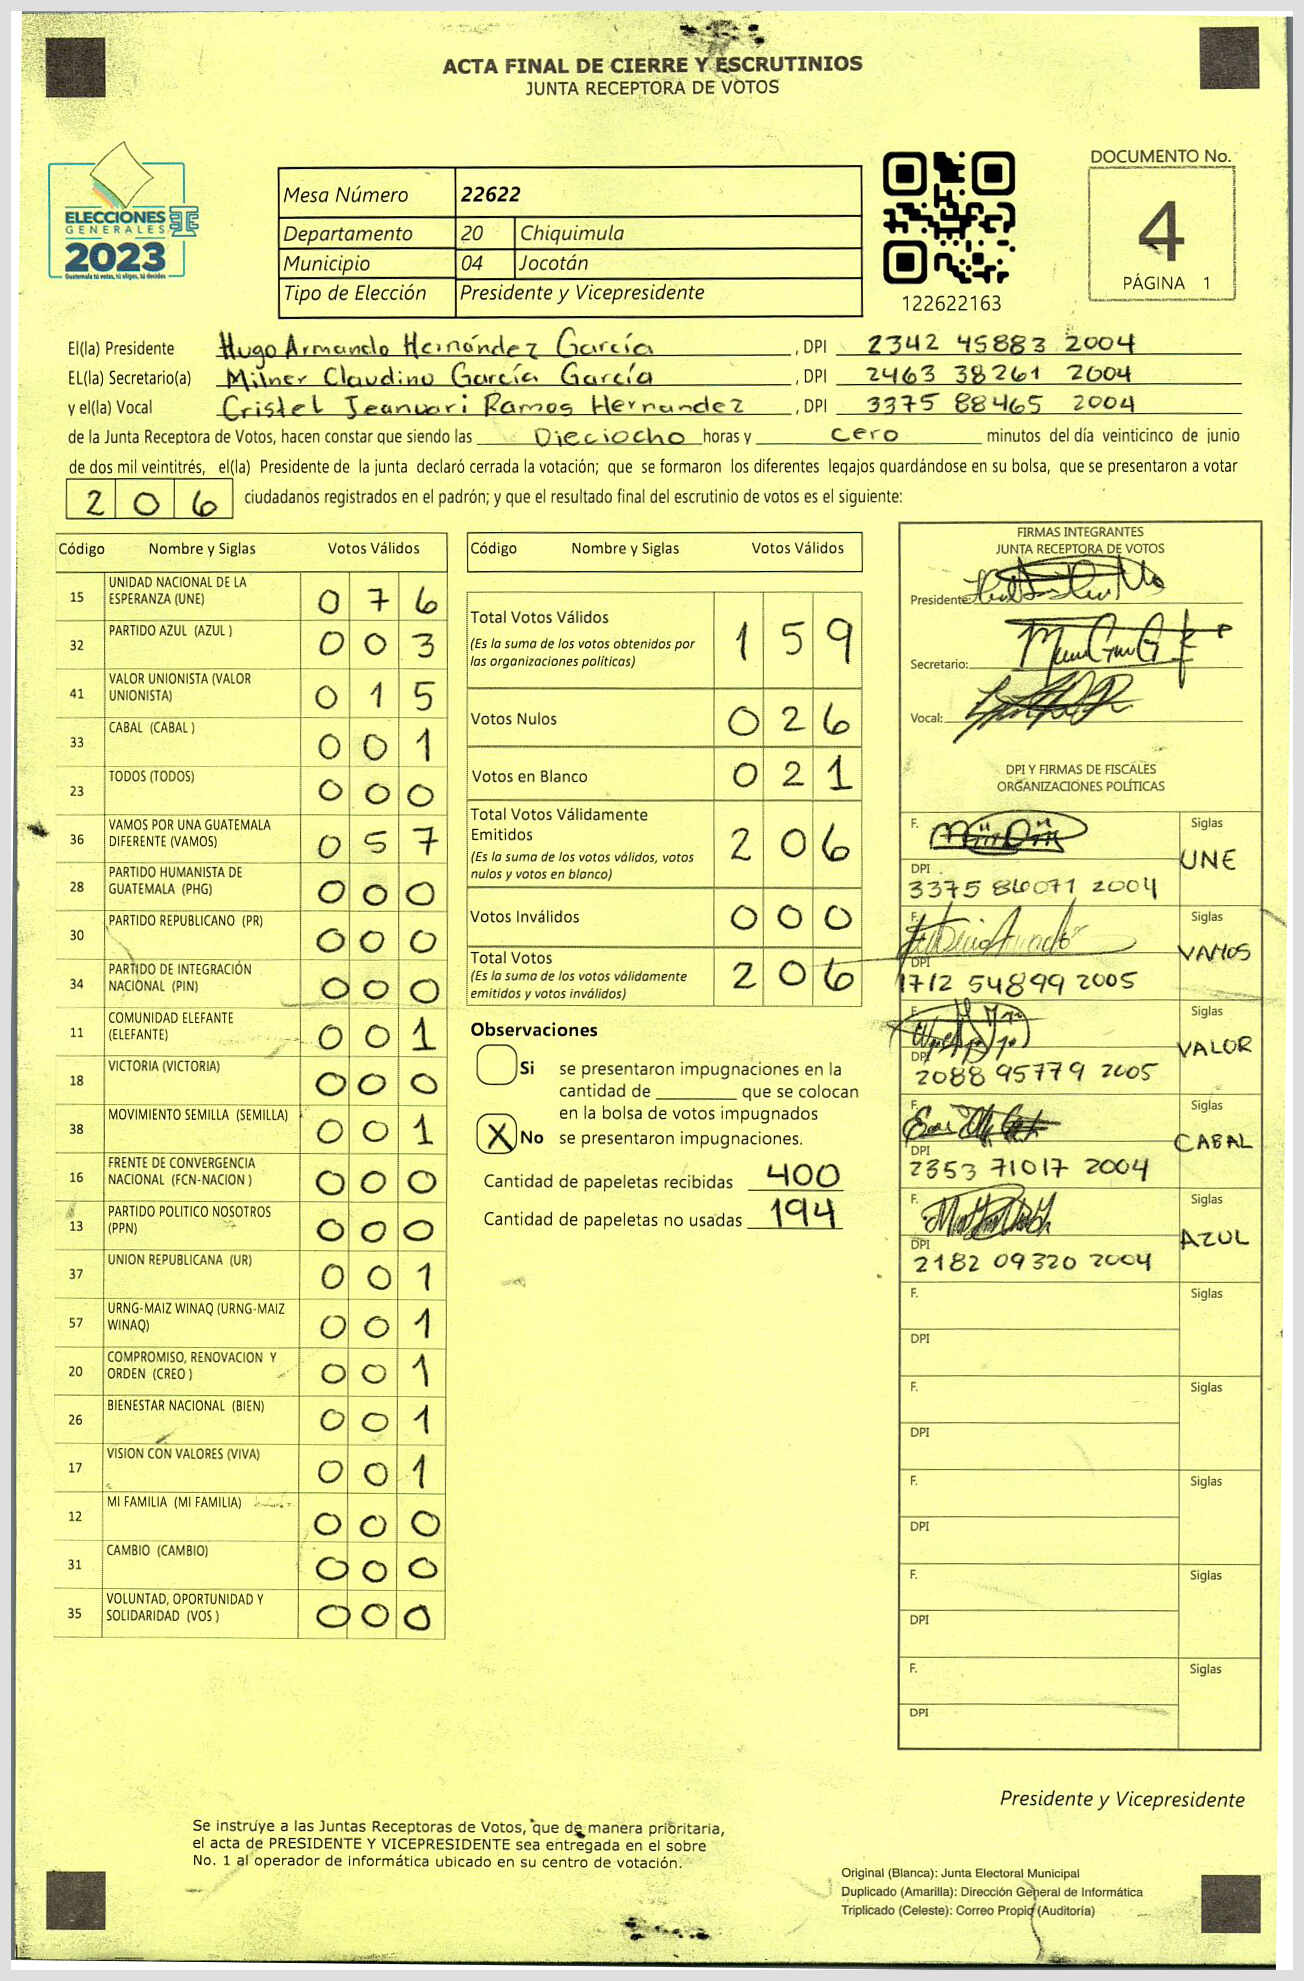 ACTA FINAL DE CIERRE Y ESCRUTINIOS
JUNTA RECEPTORA DE VOTOS
ELECCIONES
GENERALES
2023
Guatemala tú votas, tú eliges, tú decides
Mesa Número 22622
Departamento 20 Chiquimula
Municipio 04 Jocotán
Tipo de Elección Presidente y Vicepresidente
122622163
DOCUMENTO No.
4
PÁGINA 1
El(la) Presidente Hugo Armando Hernández García, DPI 2342 45883 2004
EL(la) Secretario(a) Milner Claudino García García, DPI 2463 38261 2004
y el(la) Vocal Cristel Jeanuari Ramos Hernandez, DPI 3375 88465 2004
de la Junta Receptora de Votos, hacen constar que siendo las Dieciocho horas y cero minutos del día veinticinco de junio
de dos mil veintitrés, el(la) Presidente de la junta declaró cerrada la votación; que se formaron los diferentes legajos guardándose en su bolsa, que se presentaron a votar
206 ciudadanos registrados en el padrón; y que el resultado final del escrutinio de votos es el siguiente:
Código Nombre y Siglas Votos Válidos
15 UNIDAD NACIONAL DE LA ESPERANZA (UNE) 0 7 6
32 PARTIDO AZUL (AZUL ) 0 0 3
41 VALOR UNIONISTA (VALOR UNIONISTA) 0 1 5
33 CABAL (CABAL ) 0 0 1
23 TODOS (TODOS) 0 0 0
36 VAMOS POR UNA GUATEMALA DIFERENTE (VAMOS) 0 5 7
28 PARTIDO HUMANISTA DE GUATEMALA (PHG) 0 0 0
30 PARTIDO REPUBLICANO (PR) 0 0 0
34 PARTIDO DE INTEGRACIÓN NACIONAL (PIN) 0 0 0
11 COMUNIDAD ELEFANTE (ELEFANTE) 0 0 1
18 VICTORIA (VICTORIA) 0 0 0
38 MOVIMIENTO SEMILLA (SEMILLA) 0 0 1
16 FRENTE DE CONVERGENCIA NACIONAL (FCN-NACION ) 0 0 0
13 PARTIDO POLITICO NOSOTROS (PPN) 0 0 0
37 UNION REPUBLICANA (UR) 0 0 1
57 URNG-MAIZ WINAQ (URNG-MAIZ WINAQ) 0 0 1
20 COMPROMISO, RENOVACION Y ORDEN (CREO ) 0 0 1
26 BIENESTAR NACIONAL (BIEN) 0 0 1
17 VISION CON VALORES (VIVA) 0 0 1
12 MI FAMILIA (MI FAMILIA) 0 0 0
31 CAMBIO (CAMBIO) 0 0 0
35 VOLUNTAD, OPORTUNIDAD Y SOLIDARIDAD (VOS ) 0 0 0
Código Nombre y Siglas Votos Válidos
Total Votos Válidos 1 5 9
(Es la suma de los votos obtenidos por
las organizaciones políticas)
Votos Nulos 0 2 6
Votos en Blanco 0 2 1
Total Votos Válidamente
Emitidos 2 0 6
(Es la suma de los votos válidos, votos
nulos y votos en blanco)
Votos Inválidos 0 0 0
Total Votos 2 0 6
(Es la suma de los votos válidamente
emitidos y votos inválidos)
Observaciones
Si se presentaron impugnaciones en la
cantidad de ________ que se colocan
en la bolsa de votos impugnados
X No se presentaron impugnaciones.
Cantidad de papeletas recibidas 400
Cantidad de papeletas no usadas 194
FIRMAS INTEGRANTES
JUNTA RECEPTORA DE VOTOS
Presidente:
Secretario:
Vocal:
DPI Y FIRMAS DE FISCALES
ORGANIZACIONES POLÍTICAS
F. Siglas UNE
DPI 3375 86071 2004
F. Siglas VAMOS
DPI 1712 54899 2005
F. Siglas VALOR
DPI 2088 95779 2005
F. Siglas CABAL
DPI 2353 71017 2004
F. Siglas AZUL
DPI 2182 09320 2004
F. Siglas
DPI
F. Siglas
DPI
F. Siglas
DPI
F. Siglas
DPI
F. Siglas
DPI
Presidente y Vicepresidente
Se instruye a las Juntas Receptoras de Votos, que de manera prioritaria,
el acta de PRESIDENTE Y VICEPRESIDENTE sea entregada en el sobre
No. 1 al operador de informática ubicado en su centro de votación.
Original (Blanca): Junta Electoral Municipal
Duplicado (Amarilla): Dirección General de Informática
Triplicado (Celeste): Correo Propio (Auditoría)